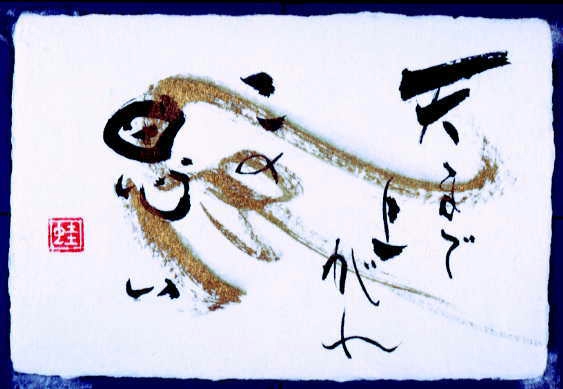 天まで
上がれ
この
思い
蛙